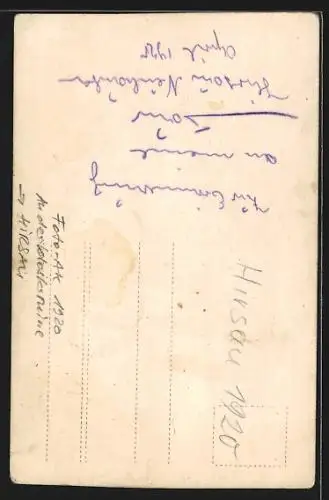 Zur Erinnerung
an meine
Hirsau
April 1920
Foto-AK 1920
An der Klosterruine
→ HIRSAU
Hirsau 1920